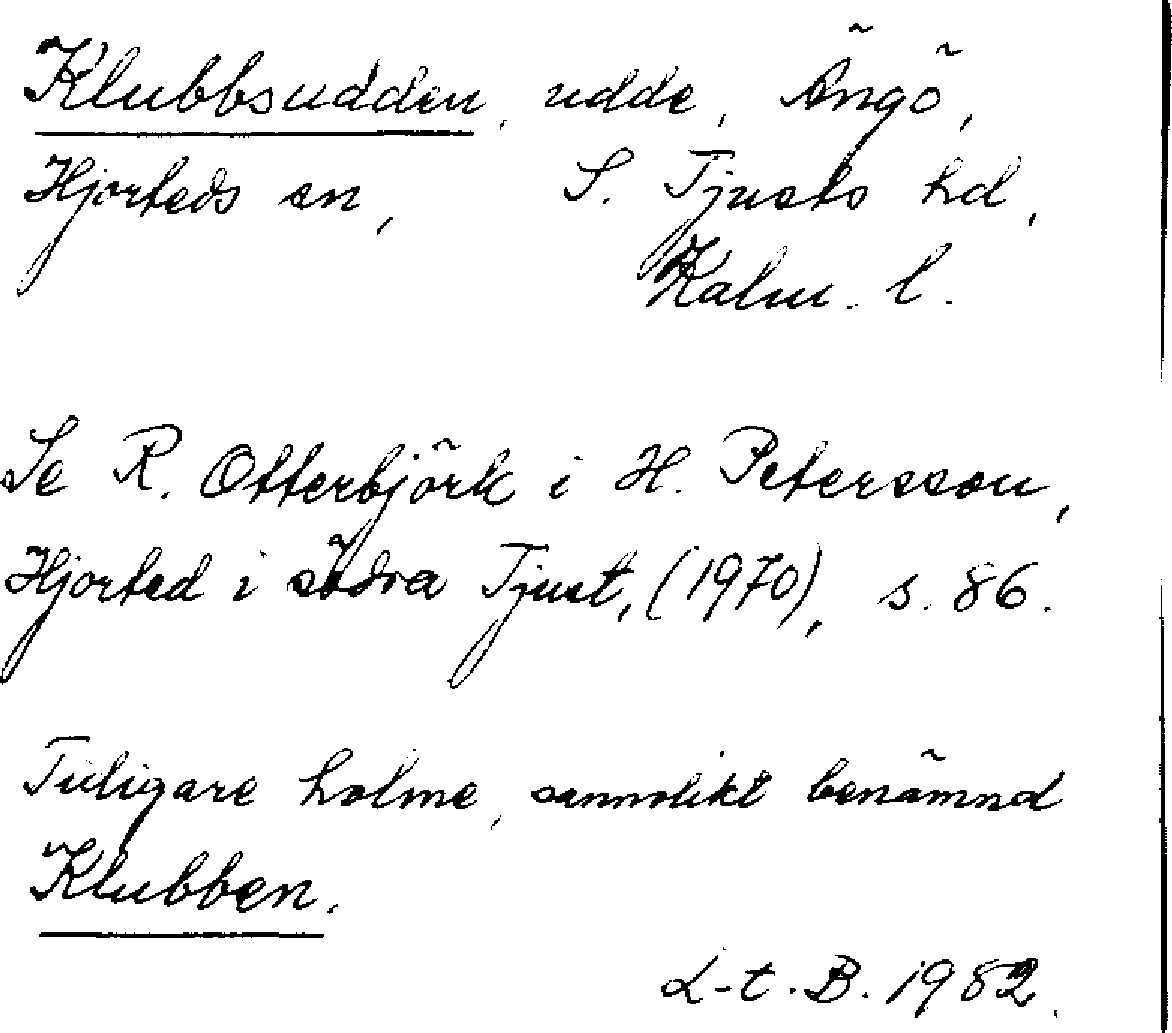 Klubbsudden, udde, Ängö,
Hjorteds sn, S. Tjusts hd,
Kalm. l.
Se R. Otterbjörk i H. Petersson,
Hjorted i södra Tjust, (1970), s. 86.
Tidigare holme, sannolikt benämnd
Klubben.
L-t. B. 1982.